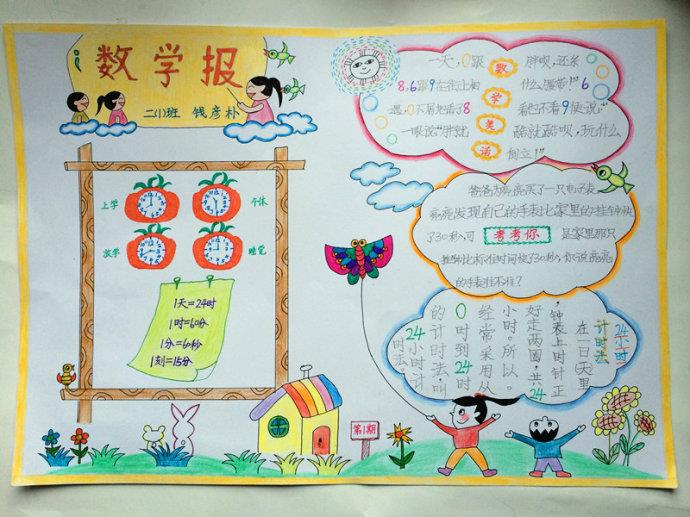 数学报
二(1)班 钱彦朴
上学
午休
放学
睡觉
1天=24时
1时=60分
1分=60秒
1刻=15分
数学笑话
一天,0跟
胖呗,还系
8,6跟9在街上相
什么腰带!"6
遇,0不屑地看了8
看也不看9便说:"
一眼说"胖就
酷就酷呗,玩什么
倒立!"
爸爸为亮亮买了一只电子表,
亮亮发现自己的手表比家里的挂钟快
了30秒,可
考考你
是家里那只
挂钟比标准时间慢了30秒,你说亮亮
的手表准不准?
24小时
计时法
在一日(天)里
,钟表上时针正
好走两圈,共24
小时。所以。
经常采用从
0时到24时
的计时法,叫
24小时计
时法。
第1期